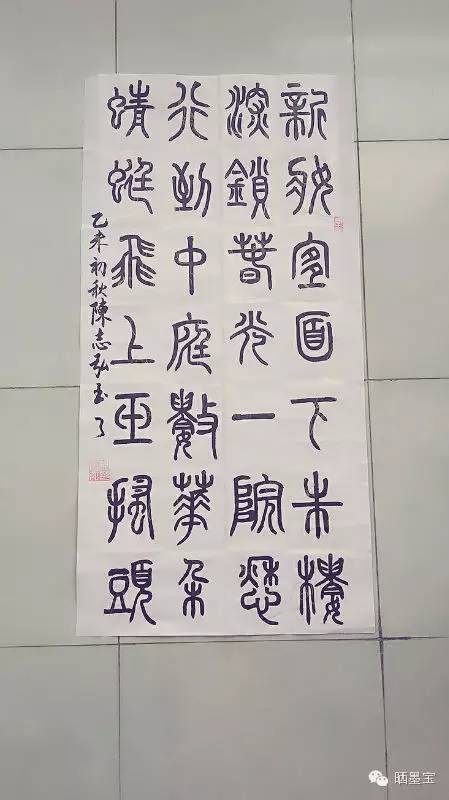 新妝宜面下朱樓
深鎖春光一院愁
行到中庭數華朵
蜻蜓飛上玉搔頭
乙未初秋陳志弘
晒墨宝